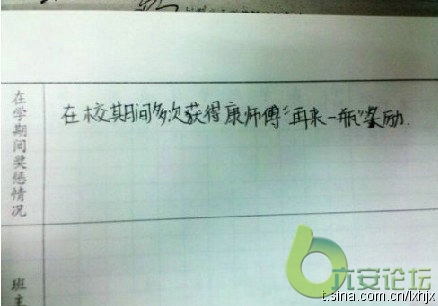 在学期间奖惩情况
在校其间多次获得康师傅“再来一瓶”奖励.
班主
六安论坛
t.sina.com.cn/lxhjx